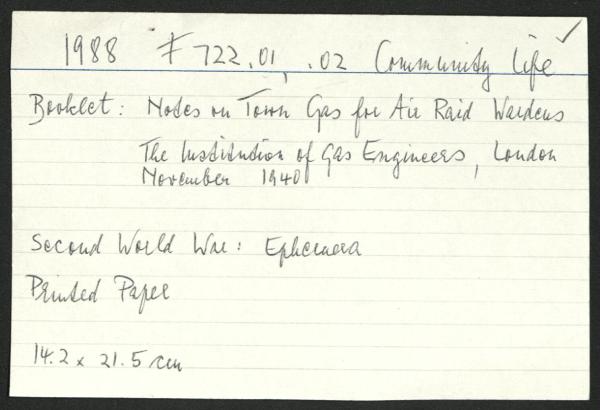 1988 F 722.01, .02 Community Life
Booklet: Notes on Town Gas for Air Raid Wardens
The Institution of Gas Engineers, London
November 1940
Second World War: Ephemera
Printed Paper
14.2 x 21.5 cm